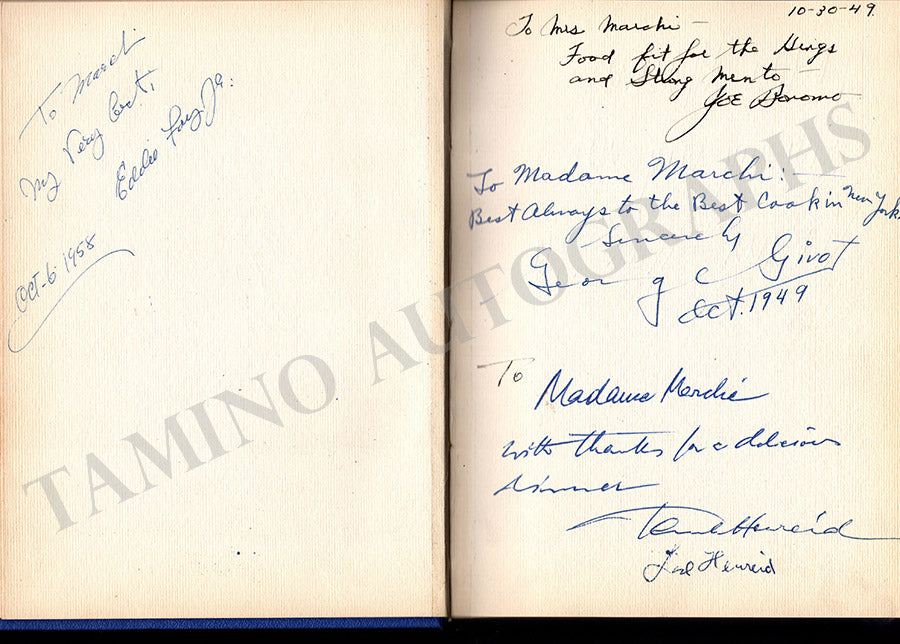 To Marchi
My Very Best,
Eddie Foy Jr:
Oct-6-1958
10-30-49.
To Mrs Marchi —
Food fit for the Kings
and Strong Men to —
Joe Bonomo
To Madame Marchi: —
Best Always to the Best Cook in New York
Sincerely
George Givot
Oct. 1949
To
Madame Marchi
with thanks for a delicious
dinner
Paul Henreid
Henreid
TAMINO AUTOGRAPHS